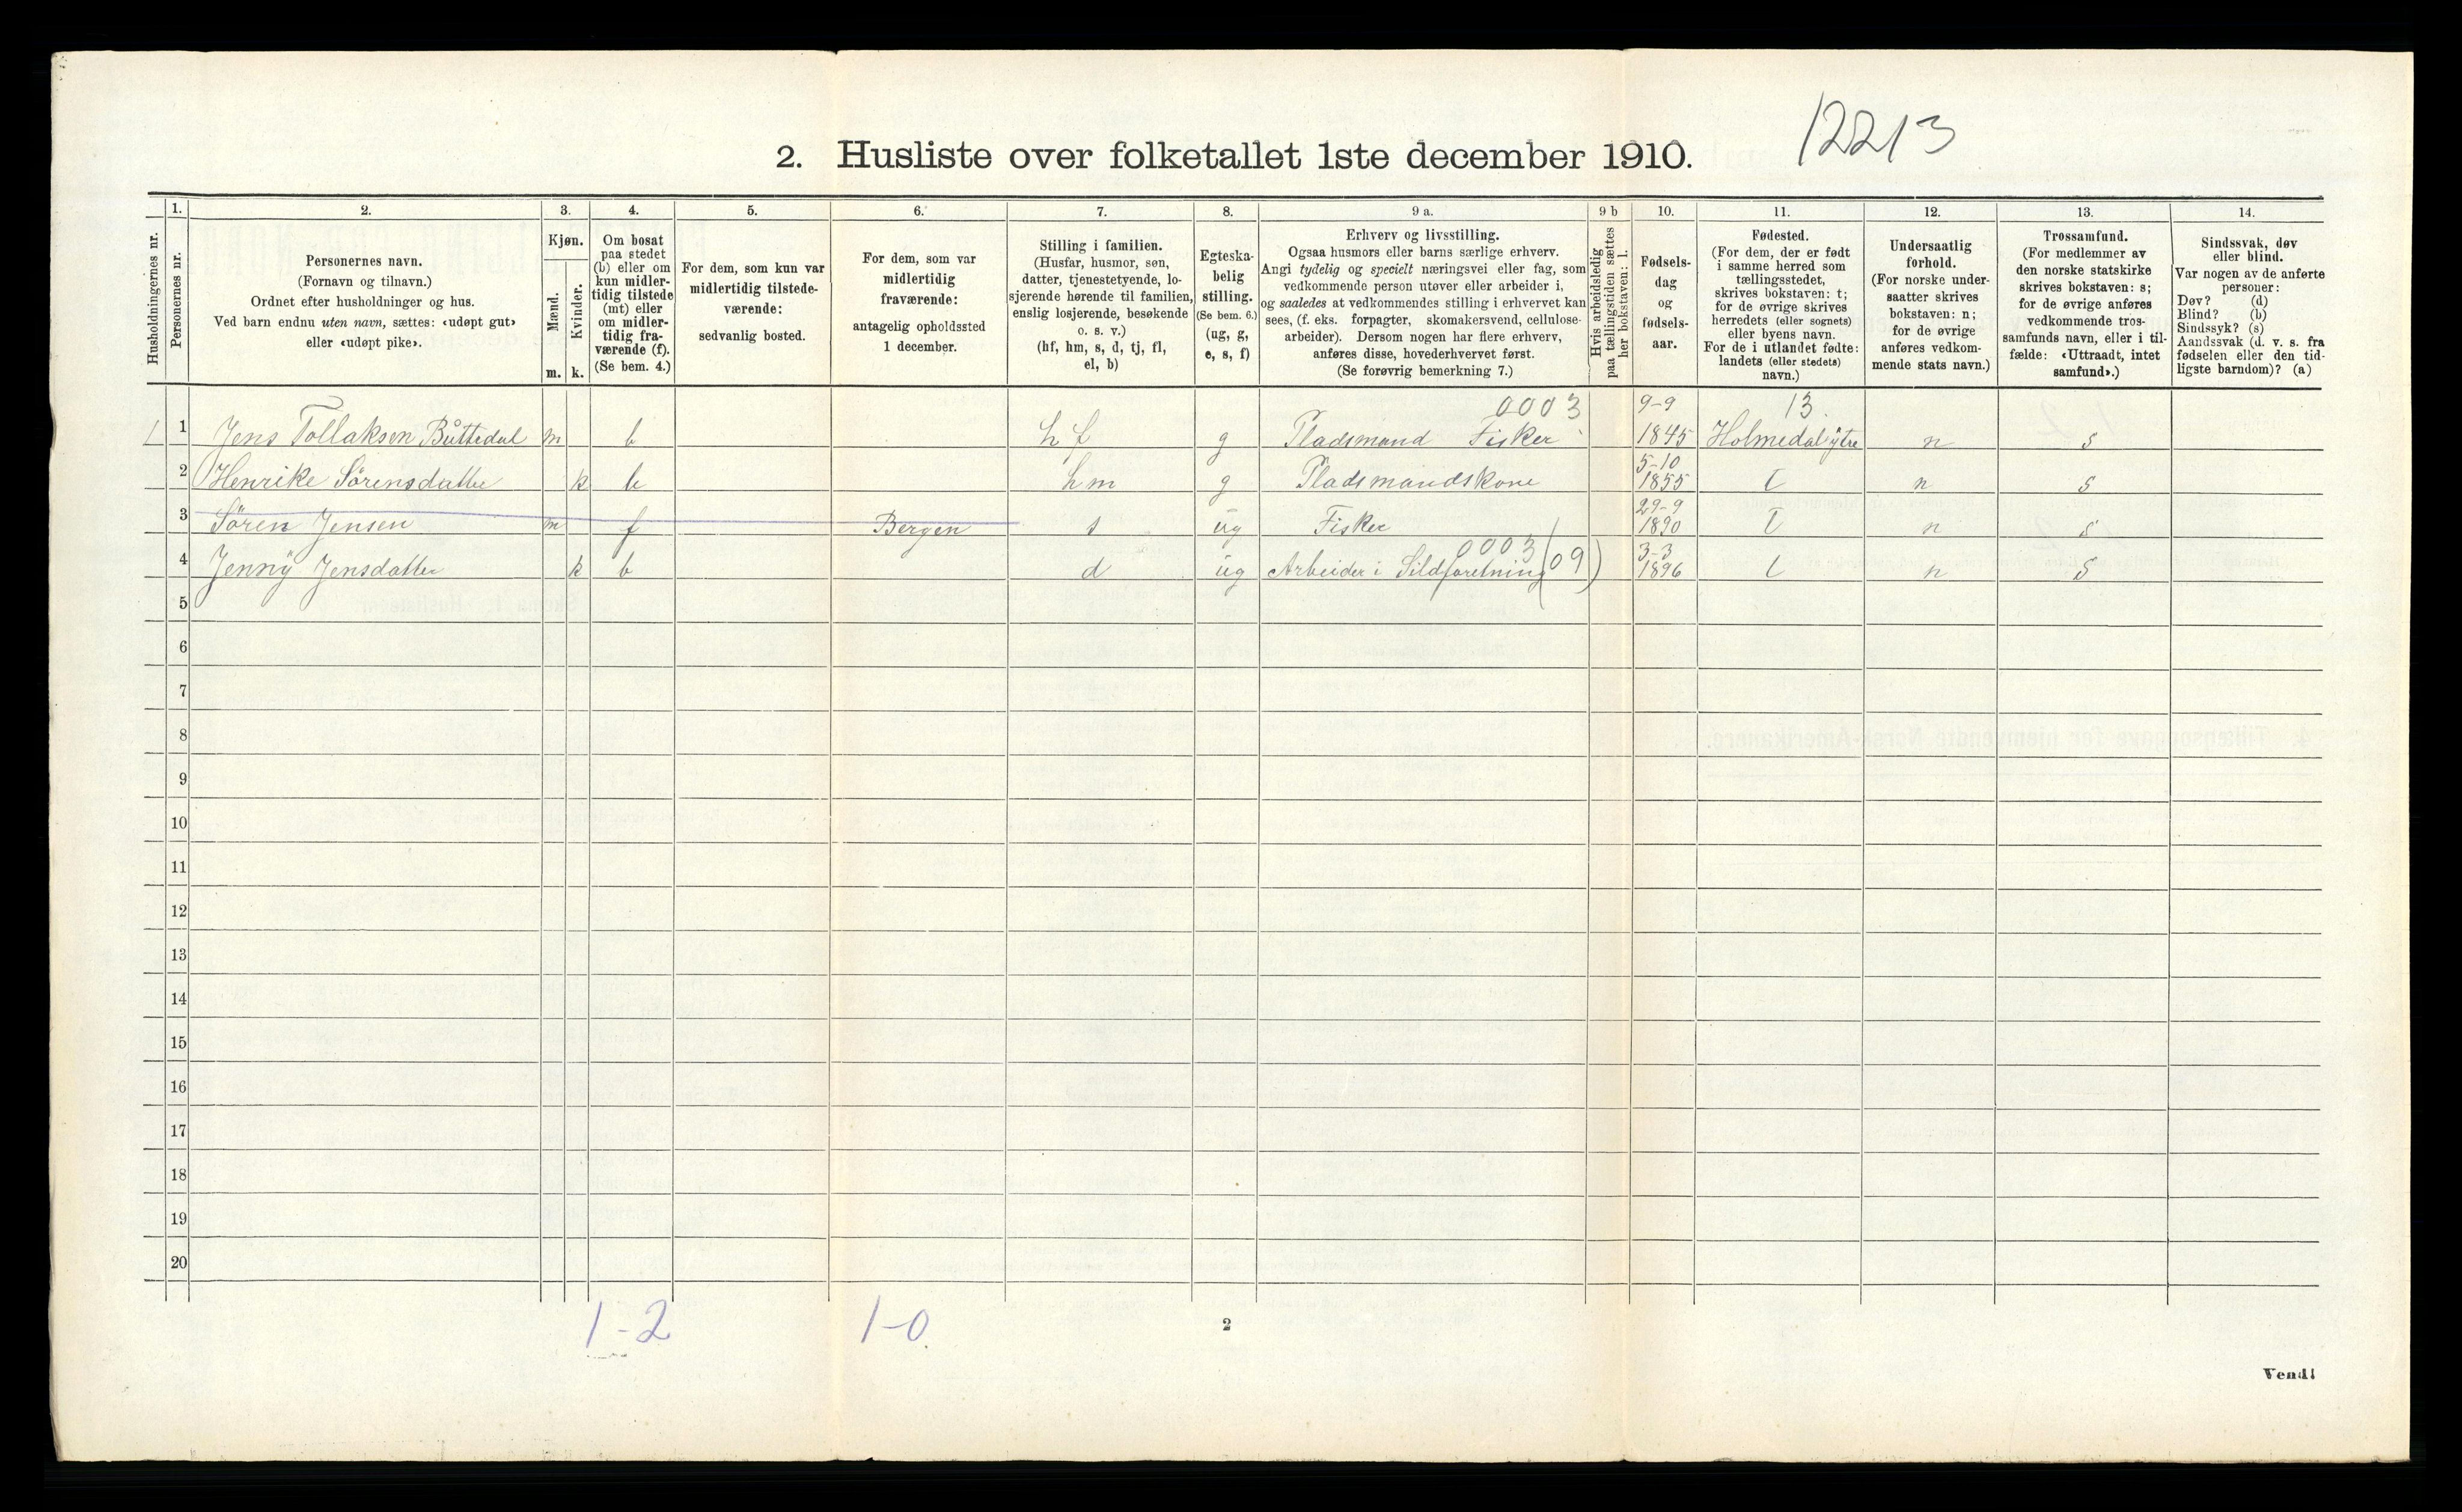 12213
2. Husliste over folketallet 1ste december 1910.
Husholdningernes nr.
1.
Personernes nr.
2.
Personernes navn.
(Fornavn og tilnavn.)
Ordnet efter husholdninger og hus.
Ved barn endnu uten navn, sættes: «udøpt gut»
eller «udøpt pike».
3.
Kjøn.
Mænd.
Kvinder.
m. k.
4.
Om bosat
paa stedet
(b) eller om
kun midler-
tidig tilstede
(mt) eller
om midler-
tidig fra-
værende (f).
(Se bem. 4.)
5.
For dem, som kun var
midlertidig tilstede-
værende:
sedvanlig bosted.
6.
For dem, som var
midlertidig
fraværende:
antagelig opholdssted
1 december.
7.
Stilling i familien.
(Husfar, husmor, søn,
datter, tjenestetyende, lo-
sjerende hørende til familien,
enslig losjerende, besøkende
o. s. v.)
(hf, hm, s, d, tj, fl,
el, b)
8.
Egteska-
belig
stilling.
(Se bem. 6.)
(ug, g,
e, s, f)
9 a.
Erhverv og livsstilling.
Ogsaa husmors eller barns særlige erhverv.
Angi tydelig og specielt næringsvei eller fag, som
vedkommende person utøver eller arbeider i,
og saaledes at vedkommendes stilling i erhvervet kan
sees, (f. eks. forpagter, skomakersvend, cellulose-
arbeider). Dersom nogen har flere erhverv,
anføres disse, hovederhvervet først.
(Se forøvrig bemerkning 7.)
9 b
Hvis arbeidsledig
paa tællingstiden sættes
her bokstaven: l.
10.
Fødsels-
dag
og
fødsels-
aar.
11.
Fødested.
(For dem, der er født
i samme herred som
tællingsstedet,
skrives bokstaven: t;
for de øvrige skrives
herredets (eller sognets)
eller byens navn.
For de i utlandet fødte:
landets (eller stedets)
navn.)
12.
Undersaatlig
forhold.
(For norske under-
saatter skrives
bokstaven: n;
for de øvrige
anføres vedkom-
mende stats navn.)
13.
Trossamfund.
(For medlemmer av
den norske statskirke
skrives bokstaven: s;
for de øvrige anføres
vedkommende tros-
samfunds navn, eller i til-
fælde: «Uttraadt, intet
samfund».)
14.
Sindssvak, døv
eller blind.
Var nogen av de anførte
personer:
Døv? (d)
Blind? (b)
Sindssyk? (s)
Aandssvak (d. v. s. fra
fødselen eller den tid-
ligste barndom)? (a)
0003 9-9 13.
1 1 Jens Tollaksen Büttedal m b hf g Pladsmand Fisker 1845 Holmedal ytre n s
5-10
2 Henrike Sörensdatter k b hm g Pladsmandskone 1855 t n s
29-9
3 Sören Jensen m f Bergen s ug Fisker 1890 t n s
0003 3-3
4 Jenny Jensdatter k b d ug Arbeider i Sildforetning (09) 1896 t n s
5
6
7
8
9
10
11
12
13
14
15
16
17
18
19
20
1-2 1-0.
2
Vend!